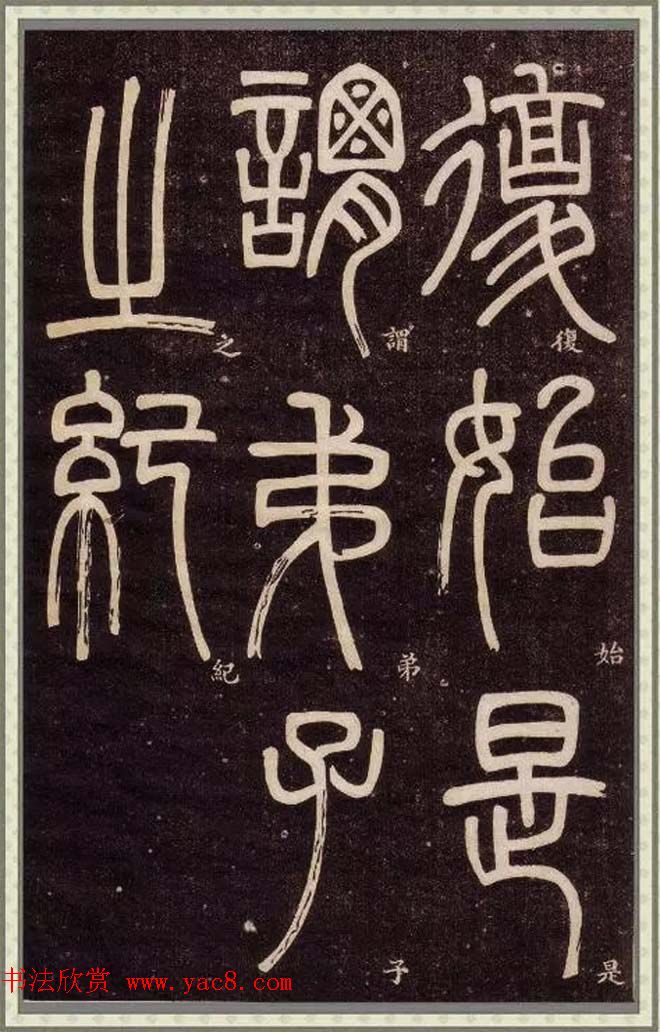 復始是
復始是
謂弟子
謂弟子
之紀
之紀
书法欣赏 www.yac8.com